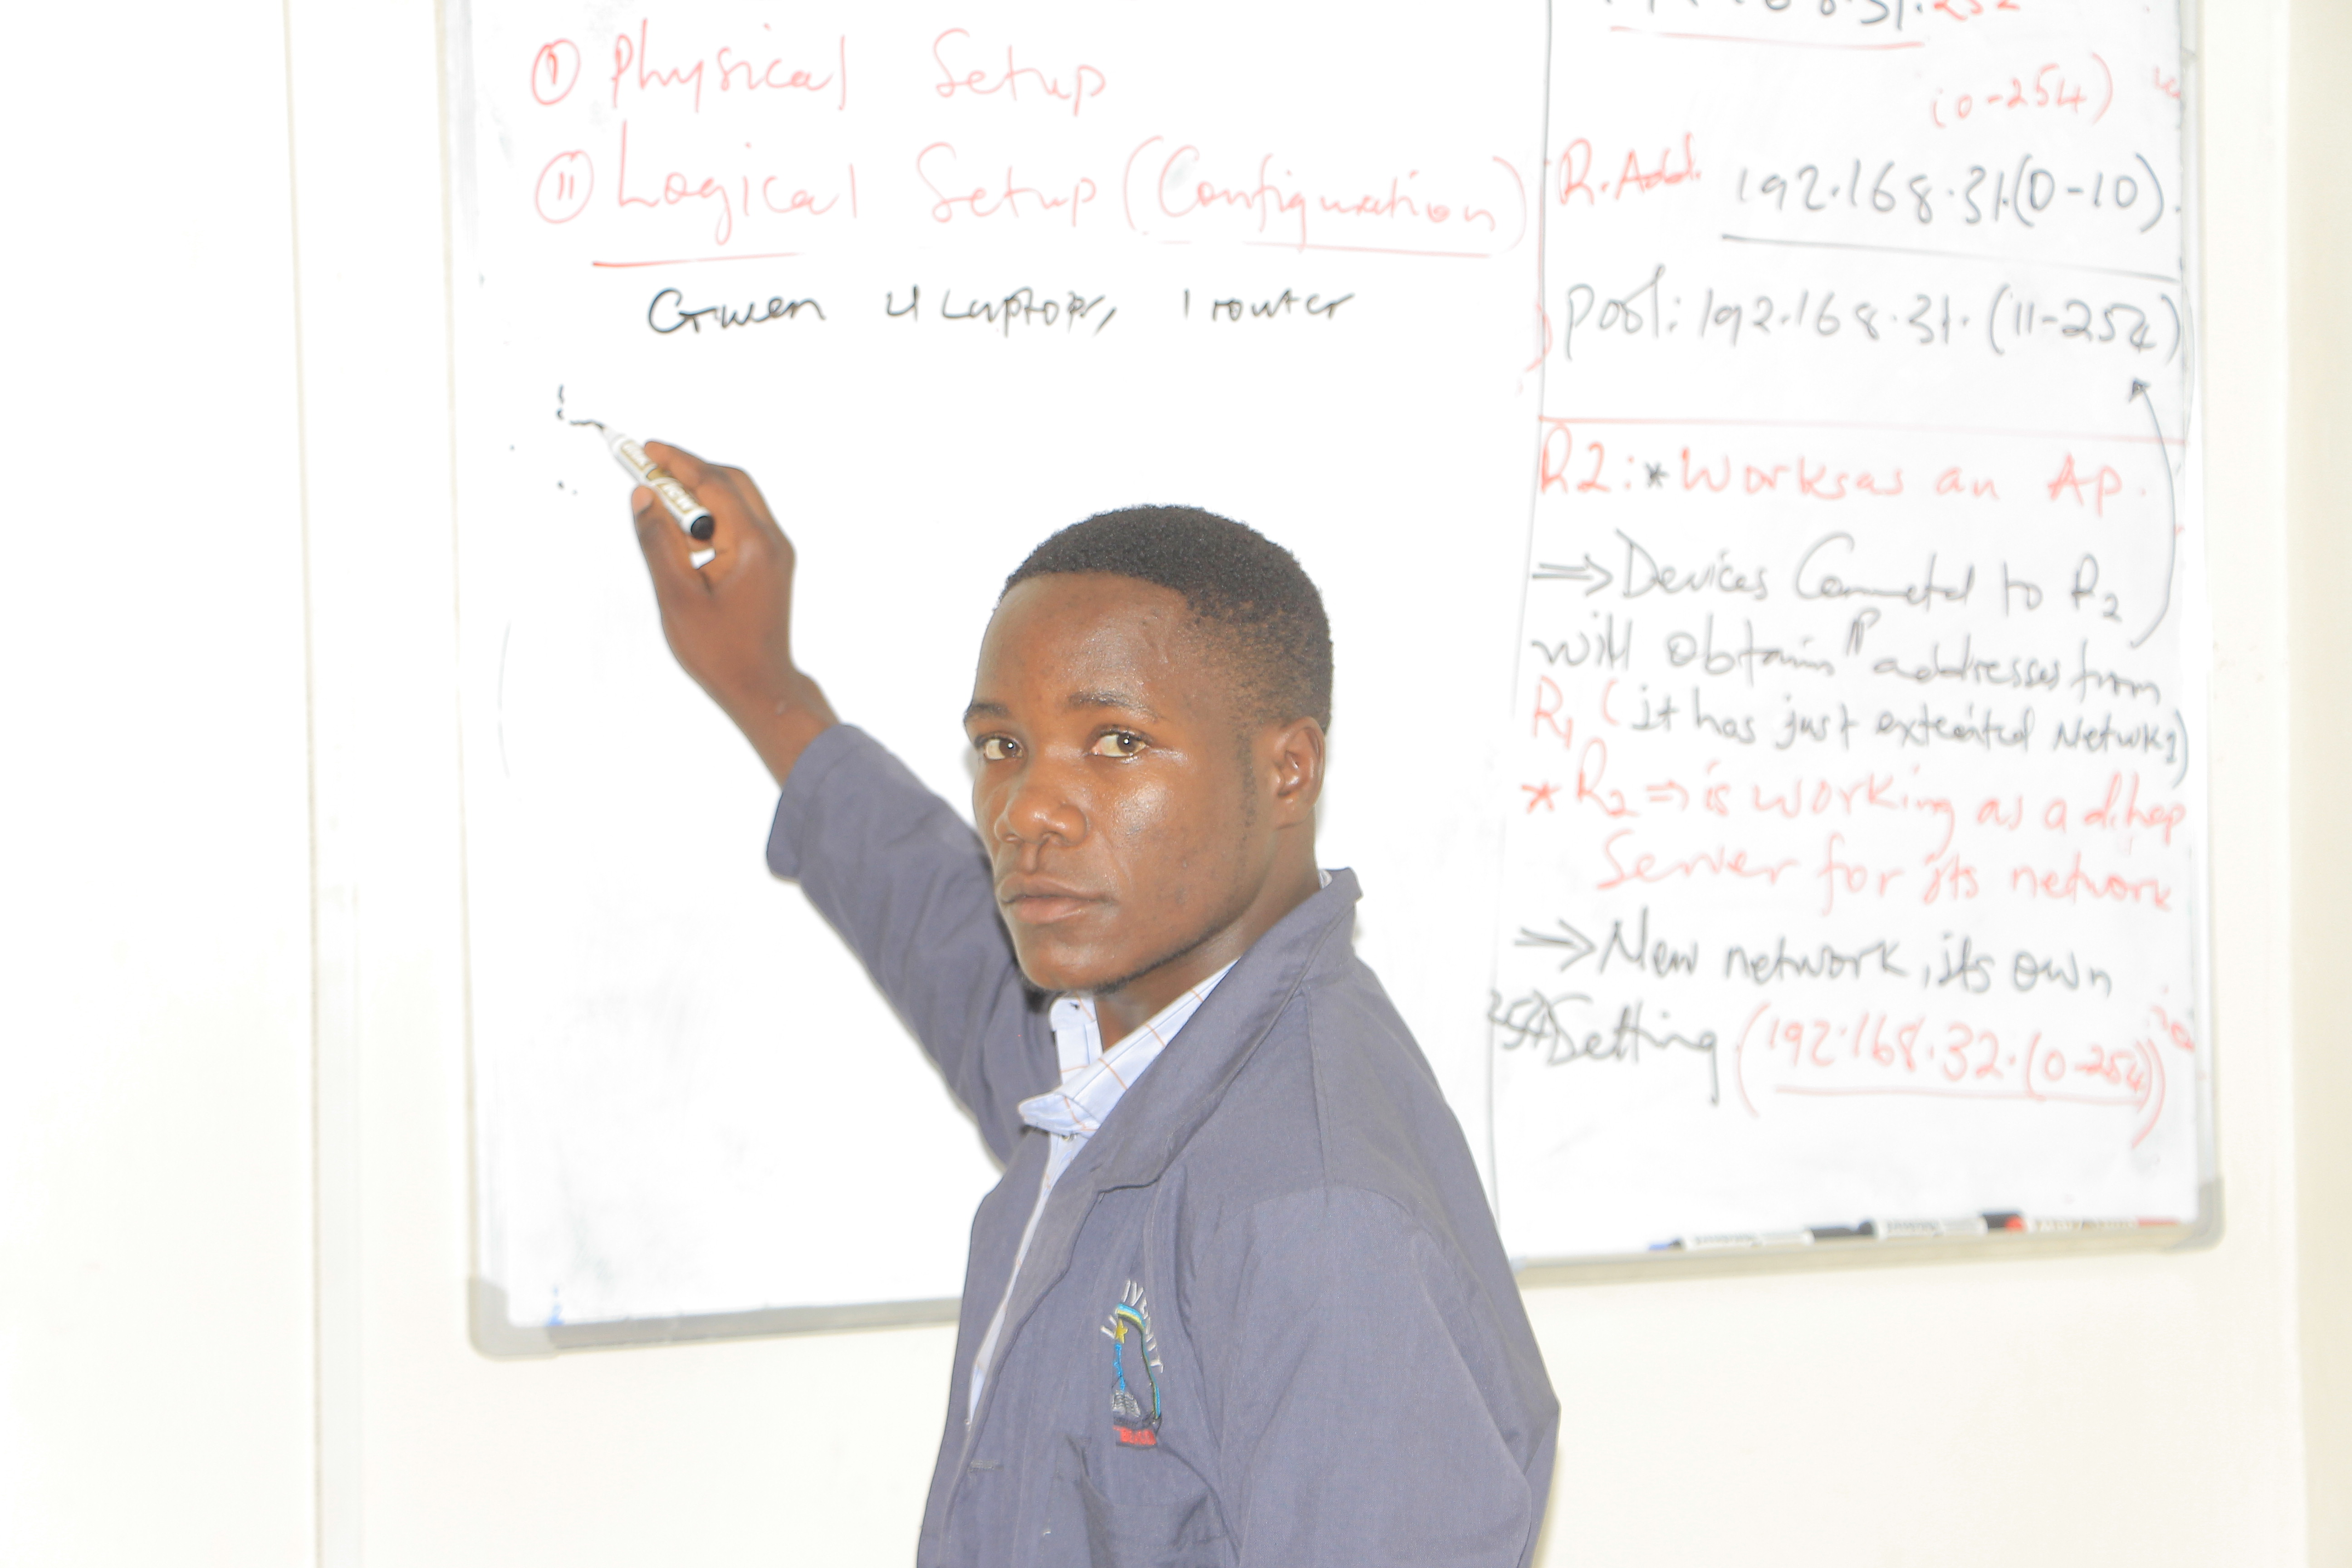 ① Physical Setup
⑪ Logical Setup (Configuration)
Given 4 Laptops, 1 router
(0-254)
R.Add. 192.168.31.(0-10).
Pool: 192.168.31.(11-254)
R2: * Works as an AP.
⇒ Devices Connected to R2
will obtain IP addresses from
R1 (it has just extended Network1)
* R2 ⇒ is working as a dhcp
Server for its network
⇒ New network, its own
Setting (192.168.32.(0-254))